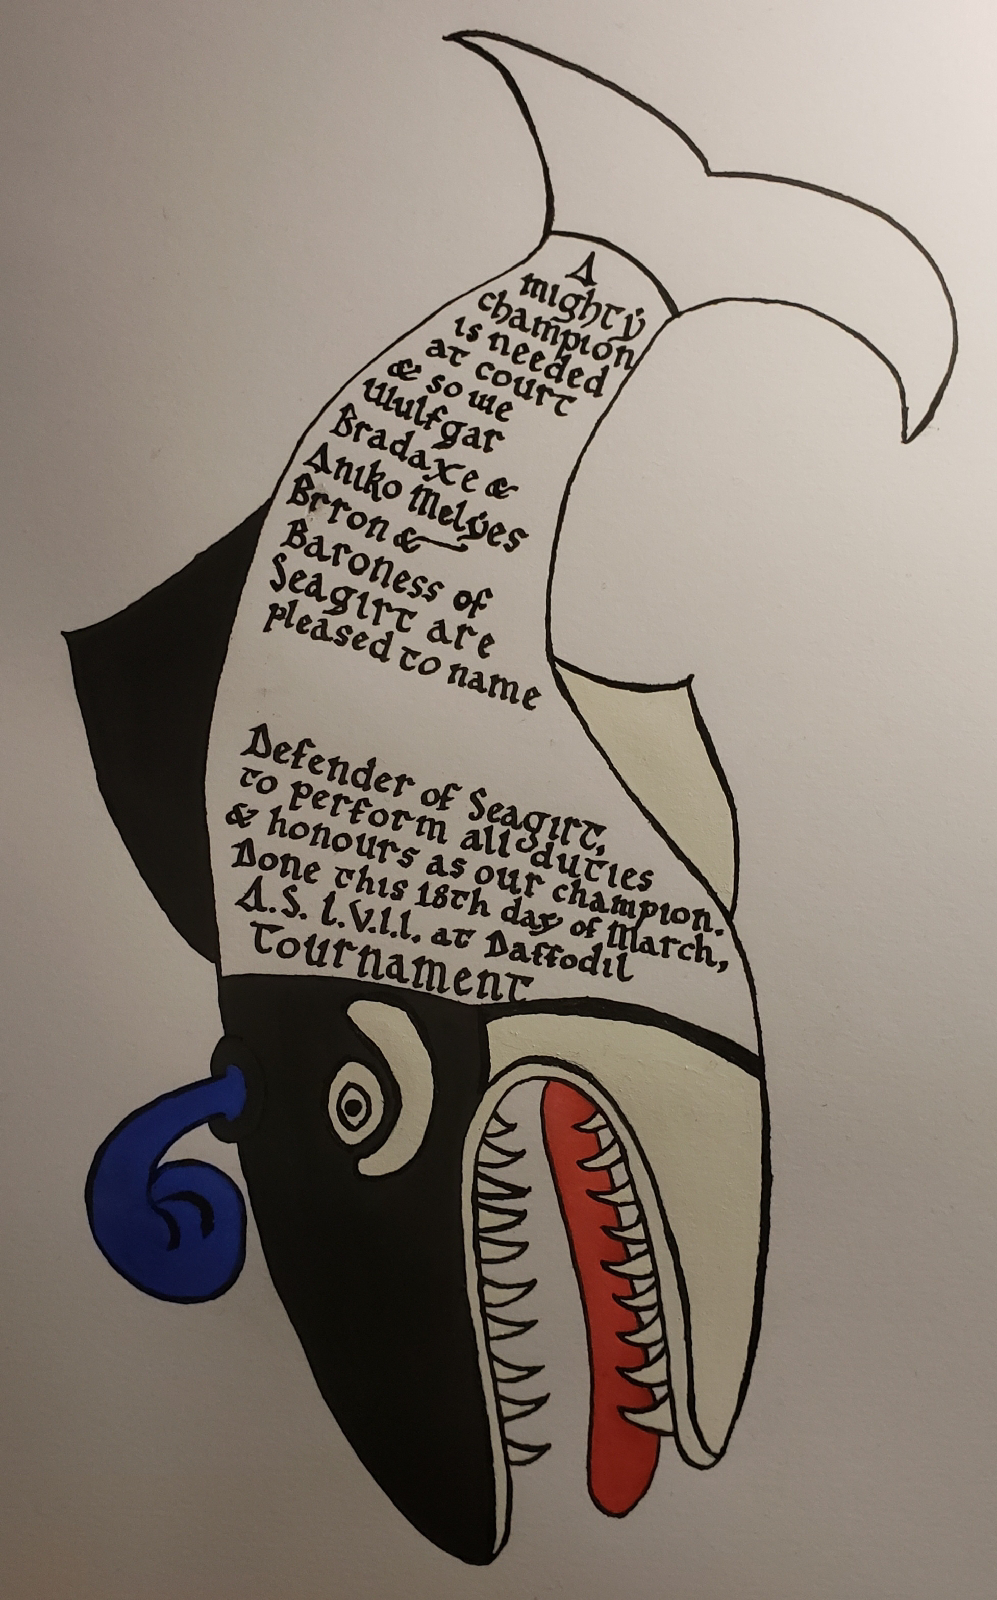 A
mighty
champion
is needed
at court
& so we
Wulfgar
Bradaxe &
Aniko Melyes
Brron &
Baroness of
Seagirt are
pleased to name
Defender of Seagirt,
to perform all duties
& honours as our champion.
Done this 18th day of March,
A.S. L.V.I.I. at Daffodil
Tournament